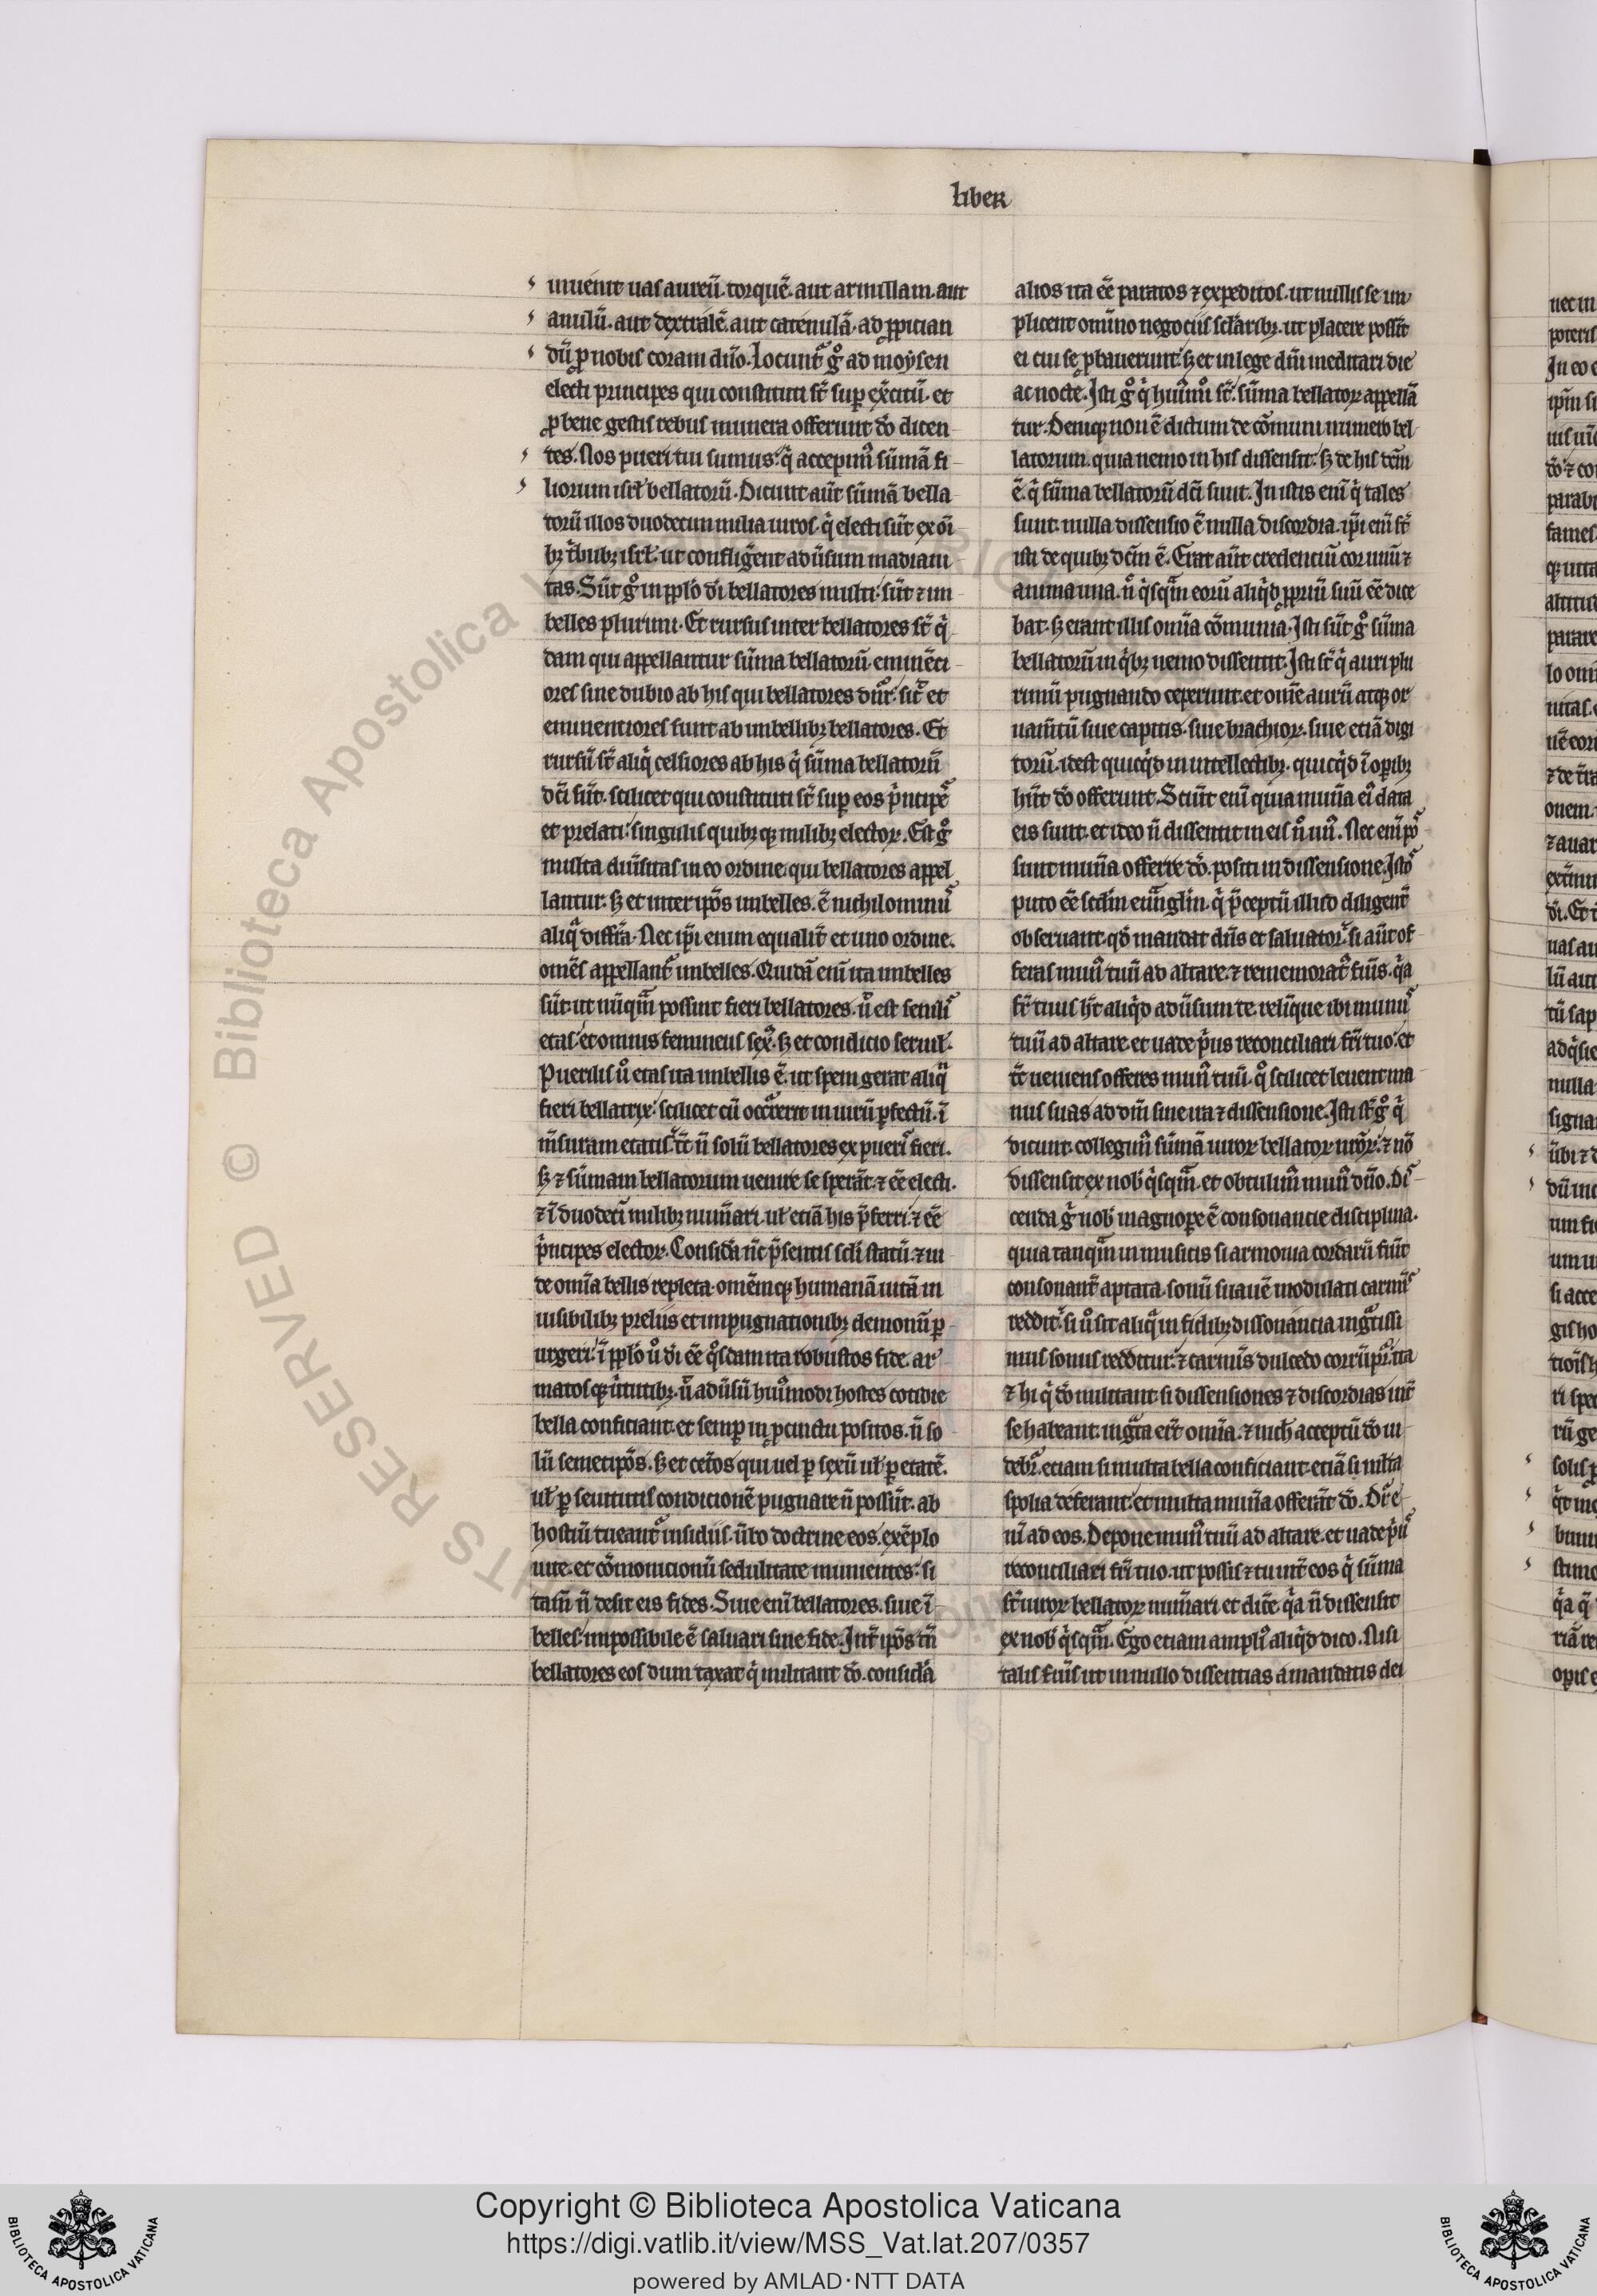 liber
inuenit uas aureū. torquē. aut armillam. aut
anulū. aut dextralē. aut catenulā. ad ꝓpician
dū ꝓ nobis coram dn̄o. Locunt᷑ gͦ ad moysen
electi principes qui constituti st̄ suꝑ ex̄citū. et
ꝓ bene gestis rebus munera offerunt dō dicen
tes. Nos pueri tui sumus. q̄ accepim᷒ sūmā fi
liorum isrl̄ bellatorū. Dicunt aūt sūmā bella
torū illos duodecim milia uiros. qⁱ electi sūt ex oī
bꝫ tⁱbubꝫ isrl̄. ut confligēent aduīsum madiani
tas. Sūt gͦ in ppl̄o dī bellatores multi. sūt ⁊ im
belles plurimi. Et rursus inter bellatores st̄ qⁱ
dam qui appellantur sūma bellatorū. eminēti
ores sine dubio ab his qui bellatores dn̄r. sic̄ et
eminentiores sunt ab imbellibꝫ bellatores. Et
rursū st̄ aliqⁱ celsiores ab his qⁱ sūma bellatorū
dc̄i sūt. scilicet qui constituti st̄ suꝑ eos pⁱncipes
et prelati. singulis quibꝫqꝫ milibꝫ electoꝝ. Est gͦ
multa diuīsitas in eo ordine. qui bellatores appel
lantur. sꝫ et inter ip̄os imbelles. ē nichilominus
aliqᵃ diffīa. Nec ip̄i enim equalit̄ et uno ordine.
omēs appellant᷑ imbelles. Quidā enī ita imbelles
sūt. ut nūqᵃm possint fieri bellatores. ū est senil᷒
etas. et omnis femineus sex᷒. sꝫ et condicio seruil᷒.
Puerilis ū etas ita imbellis ē. ut spem gerat aliqᵃ
fieri bellatrix. scilicet cū occ̄rerit in uirū ꝑfectū. ī
m̄suram etatis. tc̄ n̄ solū bellatores ex pueris fieri.
sꝫ ⁊ sūmam bellatorum uenire se sperāt. ⁊ eē electi.
⁊ ī duodecī milibꝫ num̄ari. ul̄ etiā his p̄ferri. ⁊ eē
pⁱncipes electoꝝ. Considᵃ nc̄ p̄sentis scl̄i statū. ⁊ ui
de om̄ia bellis repleta. omēmqꝫ humanā uitā in
uisibilibꝫ preliis et impugnationibꝫ demonū ꝑ
urgeri. ī ppl̄o ū dī eē qͦsdam ita robustos fide. ar
matosqꝫ uⁱtutibꝫ. ū aduīsū hui᷒modi hostes cotidie
bella conficiant. et semꝑ in ꝓcinctu positos. n̄ so
lū semetip̄os. sꝫ et cet̄os qui uel ꝑ sexū ul̄ ꝑ etatē.
ul̄ ꝑ seruitutis condicionē pugnare n̄ possūt. ab
hostiū tueant᷑ insidiis. ūbo doctrine eos. exēplo
uite. et cōmonicionū sedulitate munientes. si
tam̄ n̄ desit eis fides. Siue enī bellatores. siue ī
belles. impossibile ē saluari sine fide. Int̄ ip̄os tn̄
bellatores eos dum taxat qⁱ militant dō. considᵃ
alios ita eē paratos ⁊ expeditos. ut nullis se im
plicent om̄ino negociis scl̄aribꝫ. ut placere possīt
ei cui se ꝓbauerunt. sꝫ et in lege dn̄i meditari die
ac nocte. Isti gͦ qⁱ hui᷒mōi st̄. sūma bellatoꝝ appellā
tur. Deniqꝫ non ē dictum de cōmuni numero bel
latorum. quia nemo in his dissensit. sꝫ de his tm̄
ē. qⁱ sūma bellatorū dc̄i sunt. In istis enī qⁱ tales
sunt. nulla dissensio ē nulla discordia. ip̄i enī st̄
isti de quibꝫ dc̄m ē. Erat aūt credentiū cor unū ⁊
anima una. n̄ qⁱsqᵃm eorū aliqⁱd ꝓpriū suū eē dice
bat. sꝫ erant illis om̄ia cōmunia. Isti sūt gͦ sūma
bellatorū in qⁱbꝫ nemo dissentit. Isti st̄ qⁱ auri plu
rimū pugnando ceperunt. et om̄e aurū atqꝫ or
nam̄tū siue capitis. siue brachioꝝ. siue etiā digi
torū. idest quicqⁱd in intellectibꝫ. quicqⁱd ī oꝑibꝫ
hn̄t dō offerunt. Sciūt enī quia mun̄a eī data
eis sunt. et ideo n̄ dissentit in eis n̄ un᷒. Nec enī pos
sunt mun̄a offerre dō. positi in dissensione. Istos
puto eē scd̄m euᵃngl̄m. qⁱ p̄ceptū illud diligent̄
obseruant. qd̄ mandat dn̄s et saluator. si aūt of
feras mun᷒ tuū ad altare. ⁊ rememorat᷒ fūis. qᵃ
fr̄ tuus ht̄ aliqⁱd aduīsum te. relīque ibi munus
tuū ad altare et uade pⁱus reconciliari frī tuo. et
tc̄ ueniens offeres mun᷒ tuū. qͦ scilicet leuent ma
nus suas ad dm̄ sine ira ⁊ dissensione. Isti st̄ gͦ qⁱ
dicunt. collegim᷒ sūmā uiroꝝ bellatoꝝ nr̄oꝝ. ⁊ nō
dissensit ex nob᷒ qⁱsqᵃm. et obtulim᷒ mun᷒ dn̄o. Di
cenda gͦ nob᷒ magnoꝑe ē consonancie disciplina.
quia tanqᵃm in musicis si armonia cordarū fūit
consonant̄ aptata. sonū suauē modulati carmīs
reddit. si ū sit aliqᵃ in fidibꝫ dissonancia ingᵃtissi
mus sonus redditur. ⁊ carmīs dulcedo corrūpit᷑. ita
⁊ hi qⁱ dō militant. si dissensiones ⁊ discordias int̄
se habeant. ingᵃta erīt om̄ia. ⁊ nich̄ acceptū dō ui
debr̄. etiam si multa bella conficiant. etiā si mlt̄a
spolia deferant. et multa mun̄a offerāt dō. Dr̄ e
nī ad eos. Depone mun᷒ tuū ad altare. et uade pⁱus
reconciliari frī tuo. ut possis ⁊ tu int̄ eos qⁱ sūma
st̄ uiroꝝ bellatoꝝ num̄ari et dic̄e. qᵃ n̄ dissensit
ex nob᷒ qⁱsqᵃm. Ego etiam ampli᷒ aliqⁱd dico. Nisi
talis fūis ut in nullo dissentias a mandatis dei
© Biblioteca Apostolica Vaticana
Copyright © Biblioteca Apostolica Vaticana
https://digi.vatlib.it/view/MSS_Vat.lat.207/0357
powered by AMLAD·NTT DATA
BIBLIOTECA APOSTOLICA VATICANA
BIBLIOTECA APOSTOLICA VATICANA